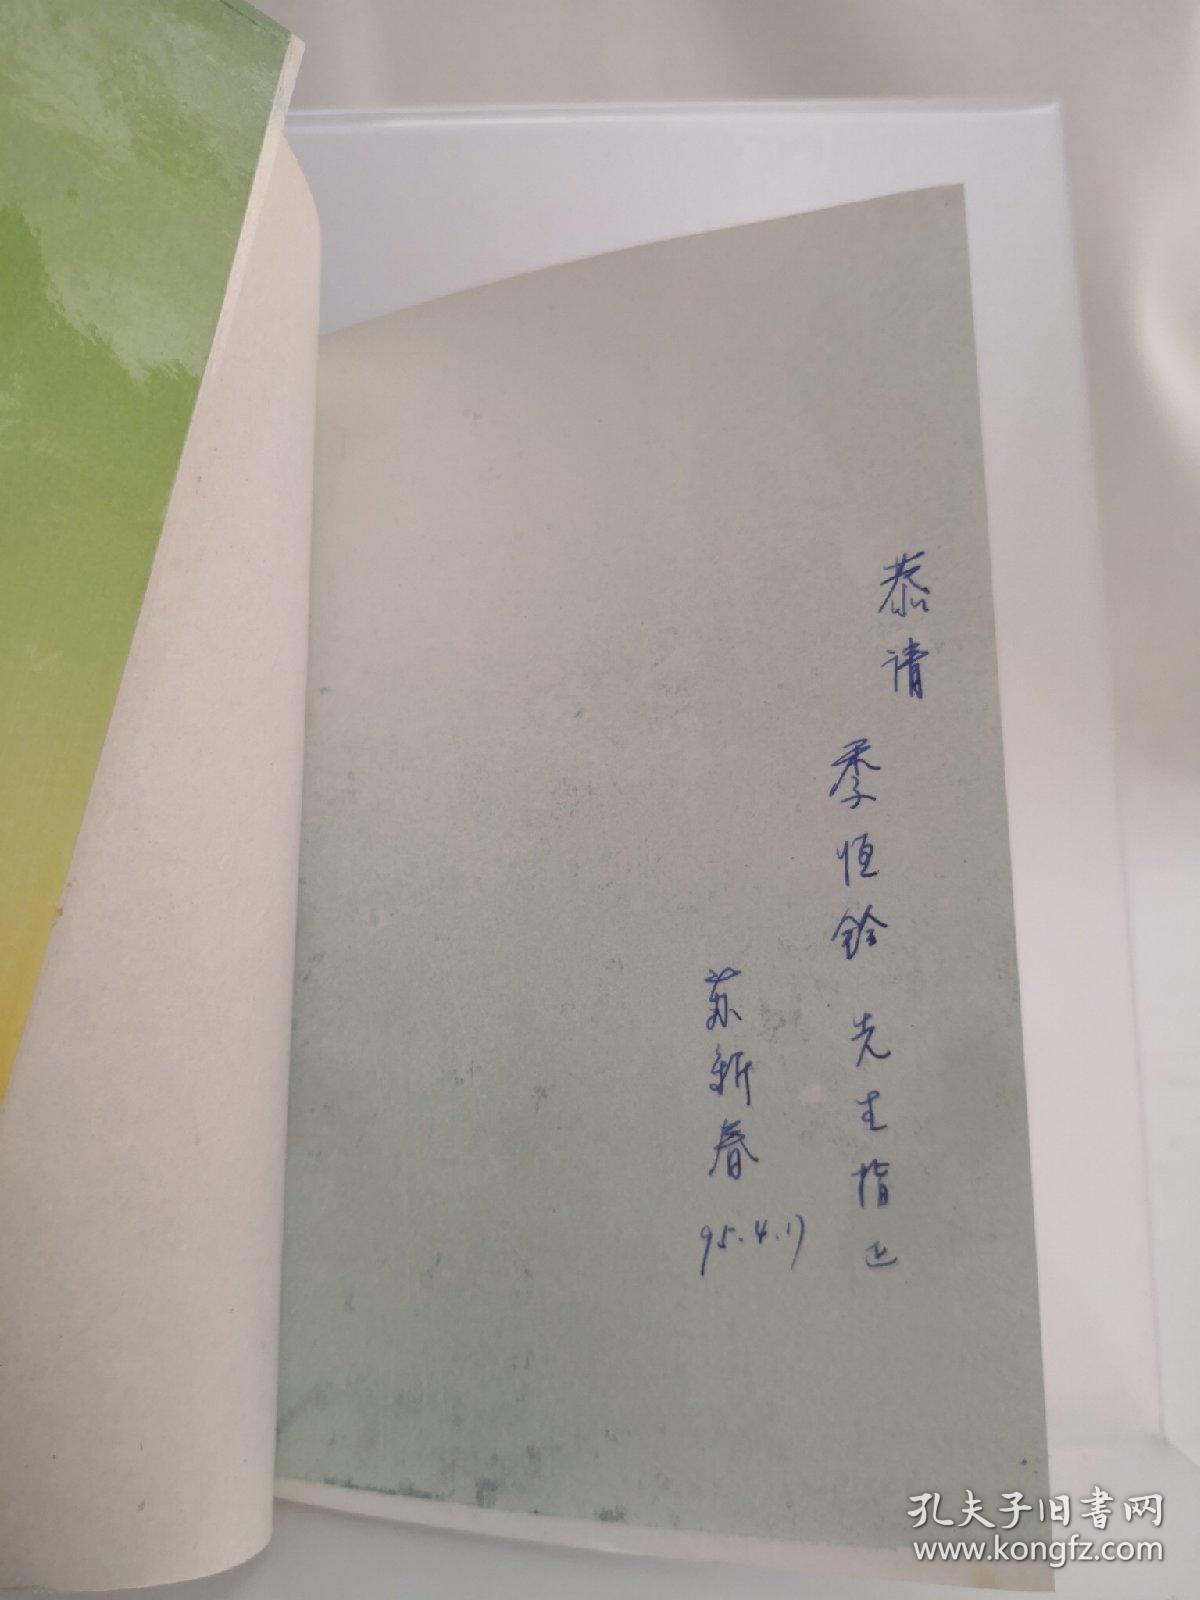 恭请
季恒铨先生指正
苏新春
95.4.17
孔夫子旧书网
www.kongfz.com